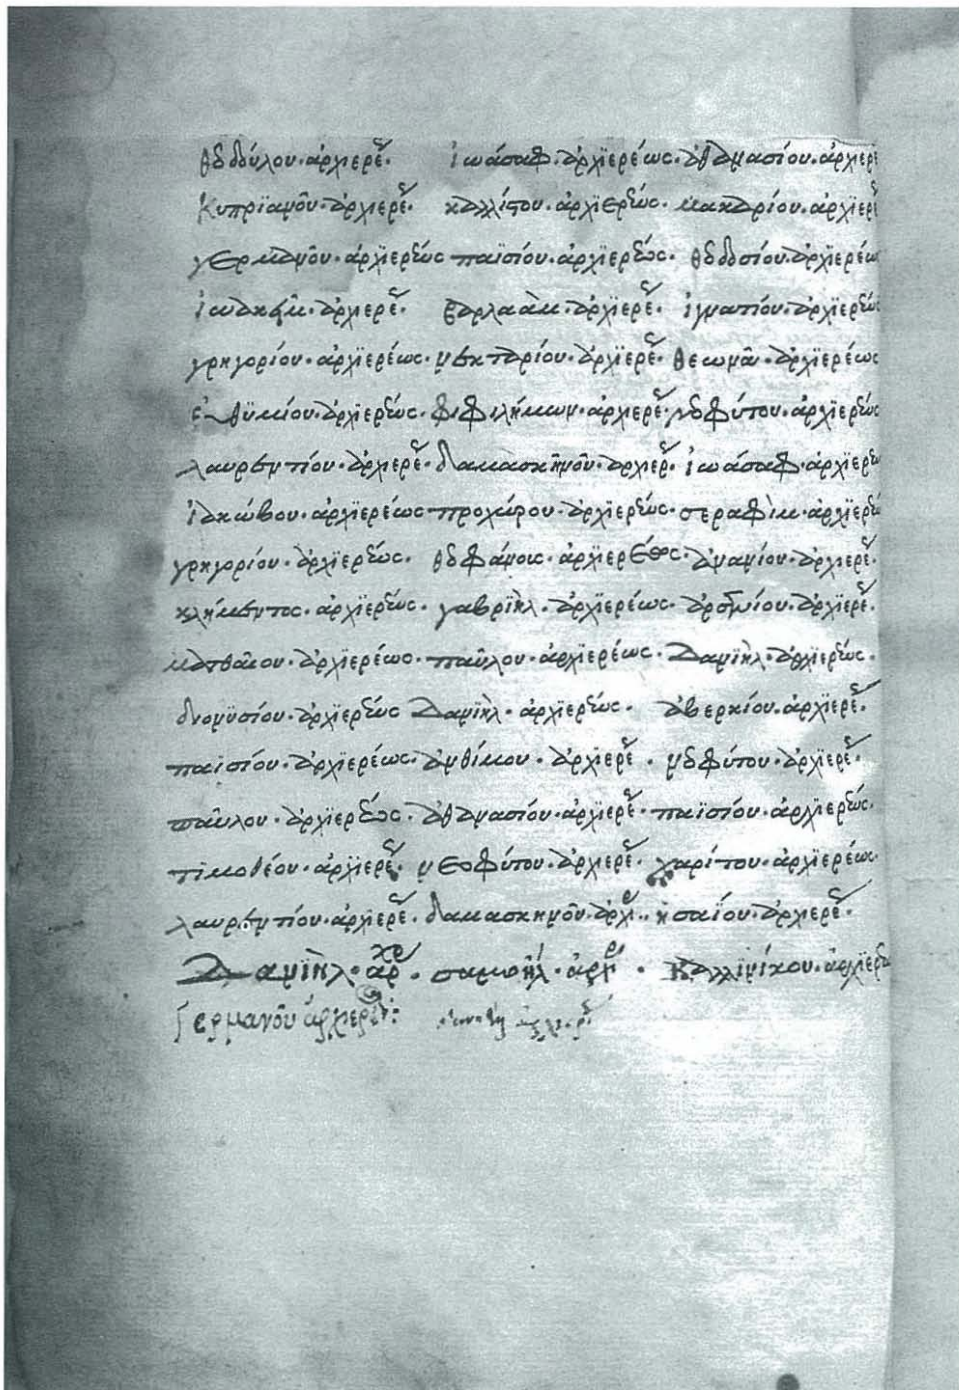 θεοδούλου· ἀρχιερέ· ἰωάσαφ· ἀρχϊερέως· ἀθανασίου· ἀρχιερέ
Κυπρϊανοῦ· ἀρχιερέ· καλλίστου· ἀρχϊερέως· μακαρίου· ἀρχϊερέ
γερμανοῦ· ἀρχϊερέως παϊσίου· ἀρχϊερέως· θεοδοσίου· ἀρχϊερέω
ἰωακεὶμ· ἀρχιερέ· βαρλαὰμ· ἀρχϊερέ· ἰγνατίου· ἀρχϊερέως
γρηγορίου· ἀρχϊερέως· νεκταρίου· ἀρχϊερέ· θεωνᾶ· ἀρχϊερέως
εὐθϋμίου· ἀρχϊερέως· φιλήμων· ἀρχιερέ· νεοφύτου· ἀρχϊερέως
λαυρεντίου· ἀρχϊερέ· δαμασκηνοῦ· ἀρχιερ· ἰωάσαφ· ἀρχϊερέω
ἰακώβου· ἀρχϊερέως προχώρου· ἀρχϊερέως· σεραφὶμ· ἀρχϊερέω
γρηγορίου· ἀρχϊερέως· θεοφάνοις· ἀρχϊερέως· ἀνανίου· ἀρχϊερέ·
κλήμεντος· ἀρχϊερέως· γαβριὴλ· ἀρχϊερέως· ἀρσενίου· ἀρχϊερέ·
ματθαίου· ἀρχϊερέως· παῦλου· ἀρχϊερέως· Δανϊὴλ· ἀρχϊερέως·
διονϋσίου· ἀρχϊερέως Δανϊὴλ· ἀρχϊερέως· ἀβερκίου· ἀρχϊερέ·
παϊσίου· ἀρχϊερέως· ἀνθίμου· ἀρχϊερέ· νεοφύτου· ἀρχϊερέ·
παῦλου· ἀρχϊερέως· ἀθανασίου· ἀρχιερέ· παϊσίου· ἀρχϊερέως·
τϊμοθέου· ἀρχϊερέ· νεοφύτου· ἀρχιερέ· χαρίτου· ἀρχϊερέως·
λαυρεντίου· ἀρχϊερέ· δαμασκηνοῦ· ἀρχϊ·· ἡσαΐου· ἀρχιερέ·
Δανϊὴλ· ἀρχ· σαμοηλ· ἀρη· Καλλϊνίκου· ἀρχϊερέω
Γερμανοῦ ἀρχιερέως: